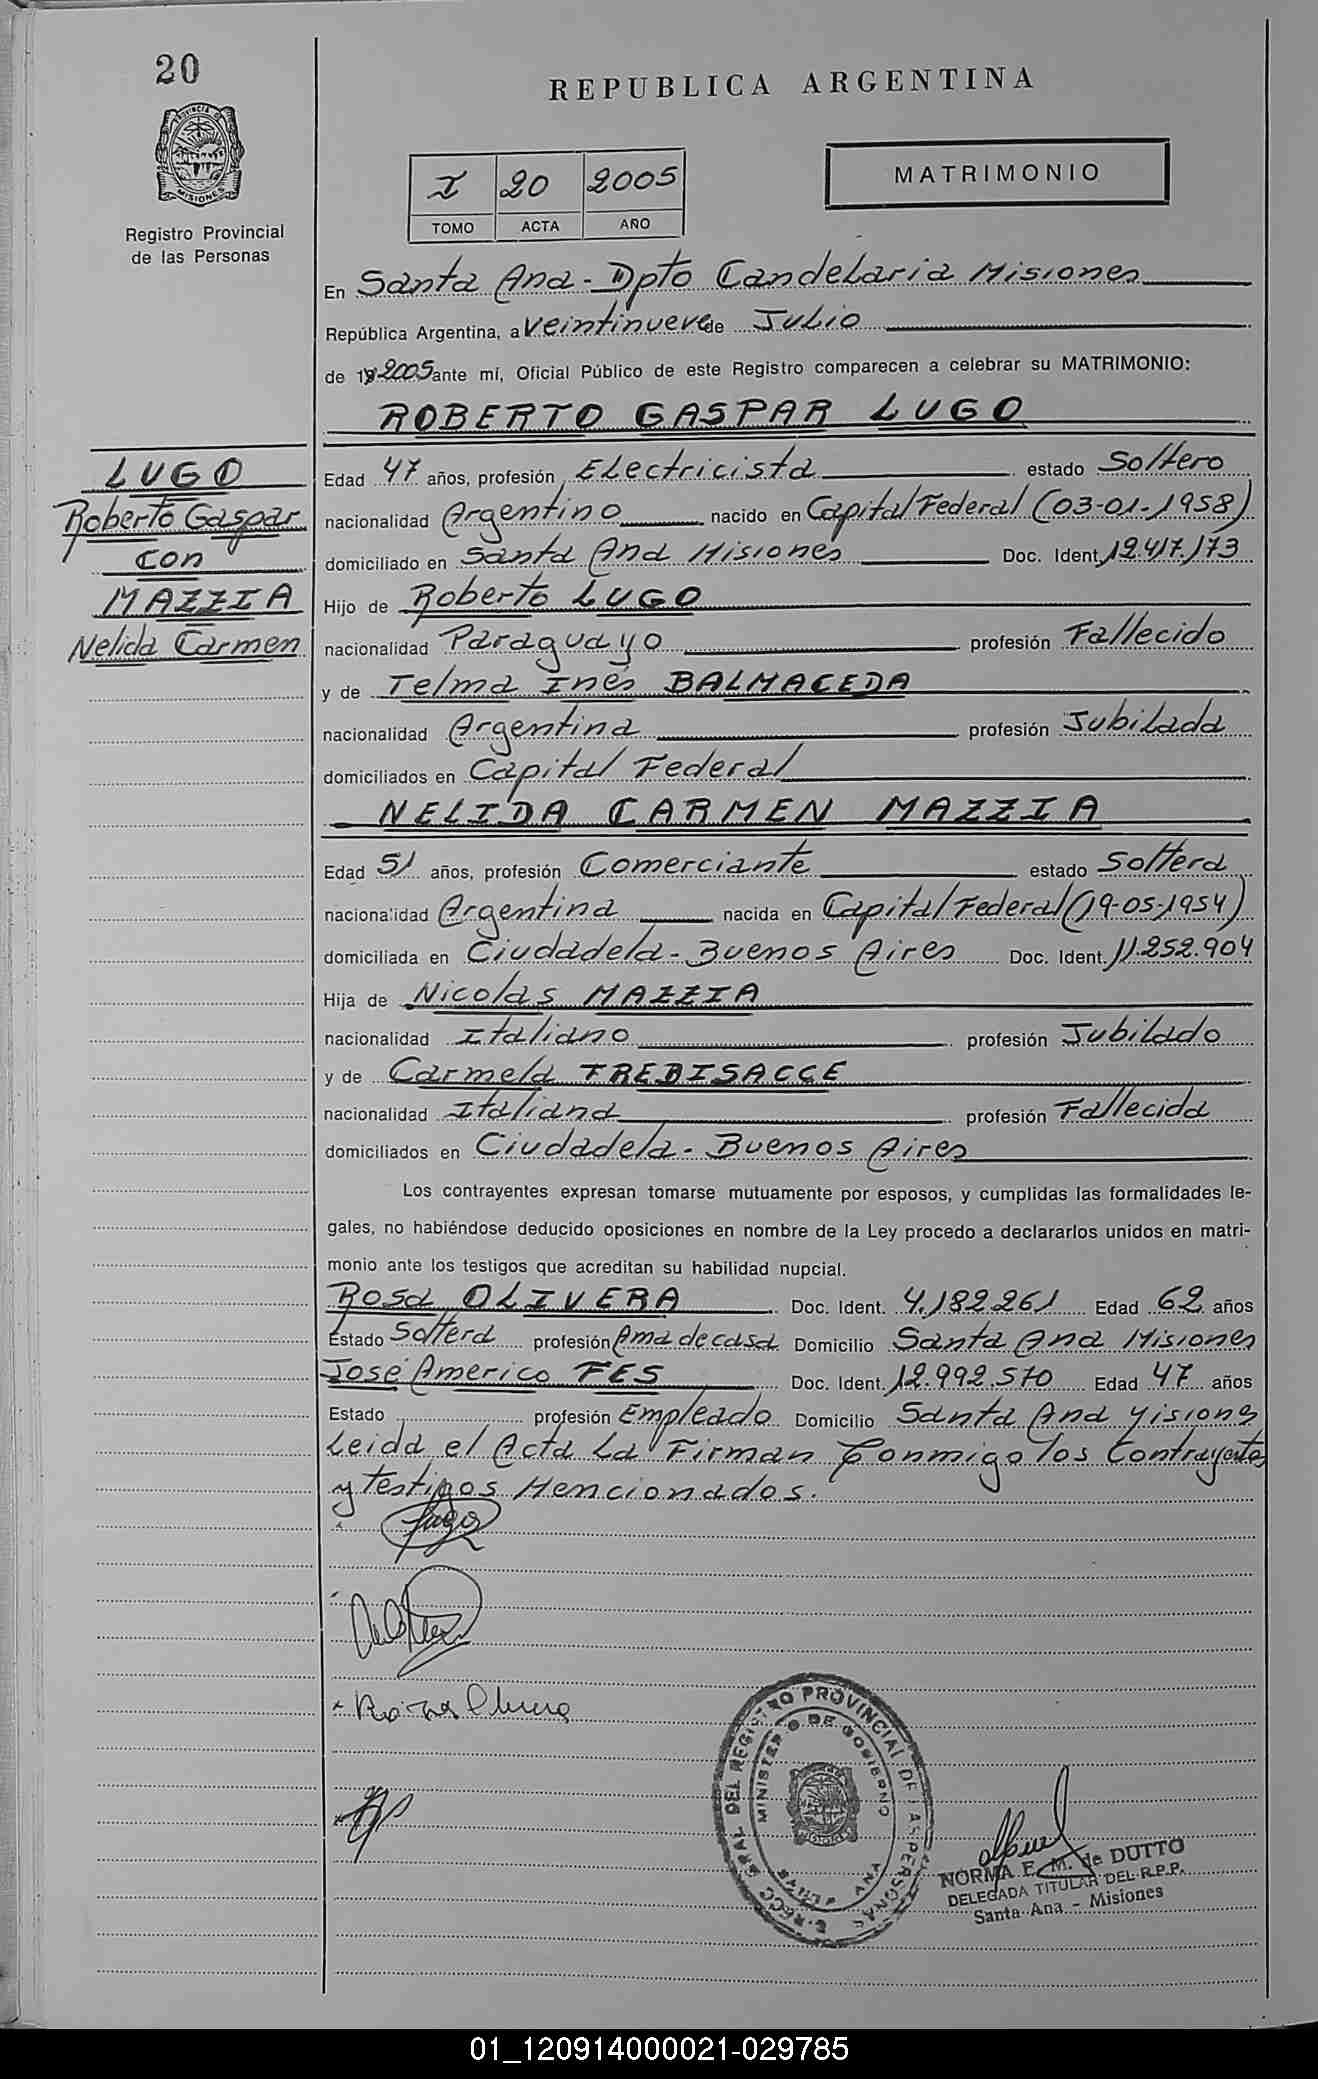 20
PROVINCIA DE
MISIONES
Registro Provincial
de las Personas
REPUBLICA ARGENTINA
I 20 2005
TOMO ACTA AÑO
MATRIMONIO
En Santa Ana - Dpto Candelaria Misiones
República Argentina, a Veintinueve de Julio
de 19 2005 ante mí, Oficial Público de este Registro comparecen a celebrar su MATRIMONIO:
ROBERTO GASPAR LUGO
LUGO
Roberto Gaspar
con
MAZZIA
Nelida Carmen
Edad 47 años, profesión Electricista estado Soltero
nacionalidad Argentino nacido en Capital Federal (03-01-1958)
domiciliado en Santa Ana Misiones Doc. Ident. 12.417.173
Hijo de Roberto LUGO
nacionalidad Paraguayo profesión Fallecido
y de Telma Inés BALMACEDA
nacionalidad Argentina profesión Jubilada
domiciliados en Capital Federal
NELIDA CARMEN MAZZIA
Edad 51 años, profesión Comerciante estado Soltera
nacionalidad Argentina nacida en Capital Federal (19-05-1954)
domiciliada en Ciudadela - Buenos Aires Doc. Ident. 11.252.904
Hija de Nicolas MAZZIA
nacionalidad Italiano profesión Jubilado
y de Carmela TREBISACCE
nacionalidad Italiana profesión Fallecida
domiciliados en Ciudadela - Buenos Aires
Los contrayentes expresan tomarse mutuamente por esposos, y cumplidas las formalidades le-
gales, no habiéndose deducido oposiciones en nombre de la Ley procedo a declararlos unidos en matri-
monio ante los testigos que acreditan su habilidad nupcial.
Rosa OLIVERA Doc. Ident. 4.182.261 Edad 62 años
Estado Soltera profesión Ama de casa Domicilio Santa Ana Misiones
José Americo FES Doc. Ident. 12.992.570 Edad 47 años
Estado profesión Empleado Domicilio Santa Ana Misiones
Leida el Acta La Firman Conmigo los Contrayentes
y testigos Mencionados.
Lugo
REGISTRO PROVINCIAL DE LAS PERSONAS
MINISTERIO DE GOBIERNO
SANTA ANA
NORMA E. M. de DUTTO
DELEGADA TITULAR DEL R.P.P.
Santa Ana - Misiones
01_120914000021-029785